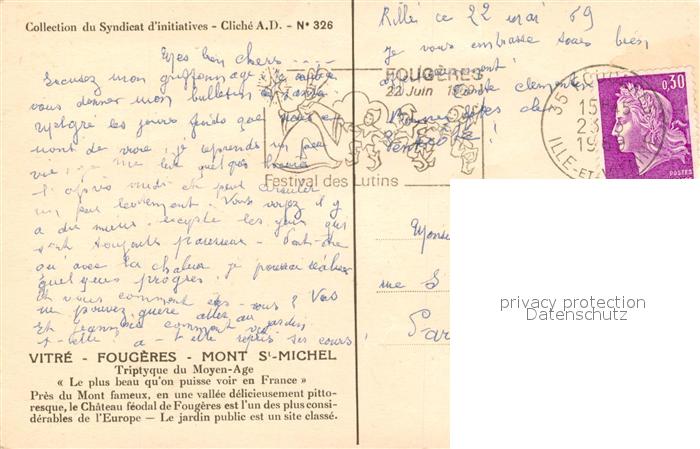 Collection du Syndicat d'initiatives - Cliché A.D. - N° 326
Mes bien chers ....
Excusez mon griffonnage : je
vous donner mon bulletin de santé
Malgré les jours froids que nous
vont de vivre, je reprends un peu
vie, je me lève quelques heures
l'après midi et peut circuler
un peu lentement. Vous voyez il y
a du mieux excepté les yeux qui
sont toujours paresseux. Peut-être
qu'avec la chaleur je pourrai réaliser
quelques progrès.
Et vous comment êtes-vous ? Vous
ne pouvez guère aller au jardin
Et comment va
t-elle, a-t-elle repris ses cours ?
VITRÉ - FOUGÈRES - MONT St-MICHEL
Triptyque du Moyen-Age
« Le plus beau qu'on puisse voir en France »
Près du Mont fameux, en une vallée délicieusement pitto-
resque, le Château féodal de Fougères est l'un des plus consi-
dérables de l'Europe — Le jardin public est un site classé.
Rillé ce 22 mai 69
je vous embrasse tous bien
affectueusement !
Bonnes fêtes de
Pentecôte !
FOUGÈRES
22 Juin 1969
Festival des Lutins
35 FOUGÈRES
15H
23
1969
ILLE-ET-VILAINE
0,30
POSTES
rue S
Paris
privacy protection
Datenschutz